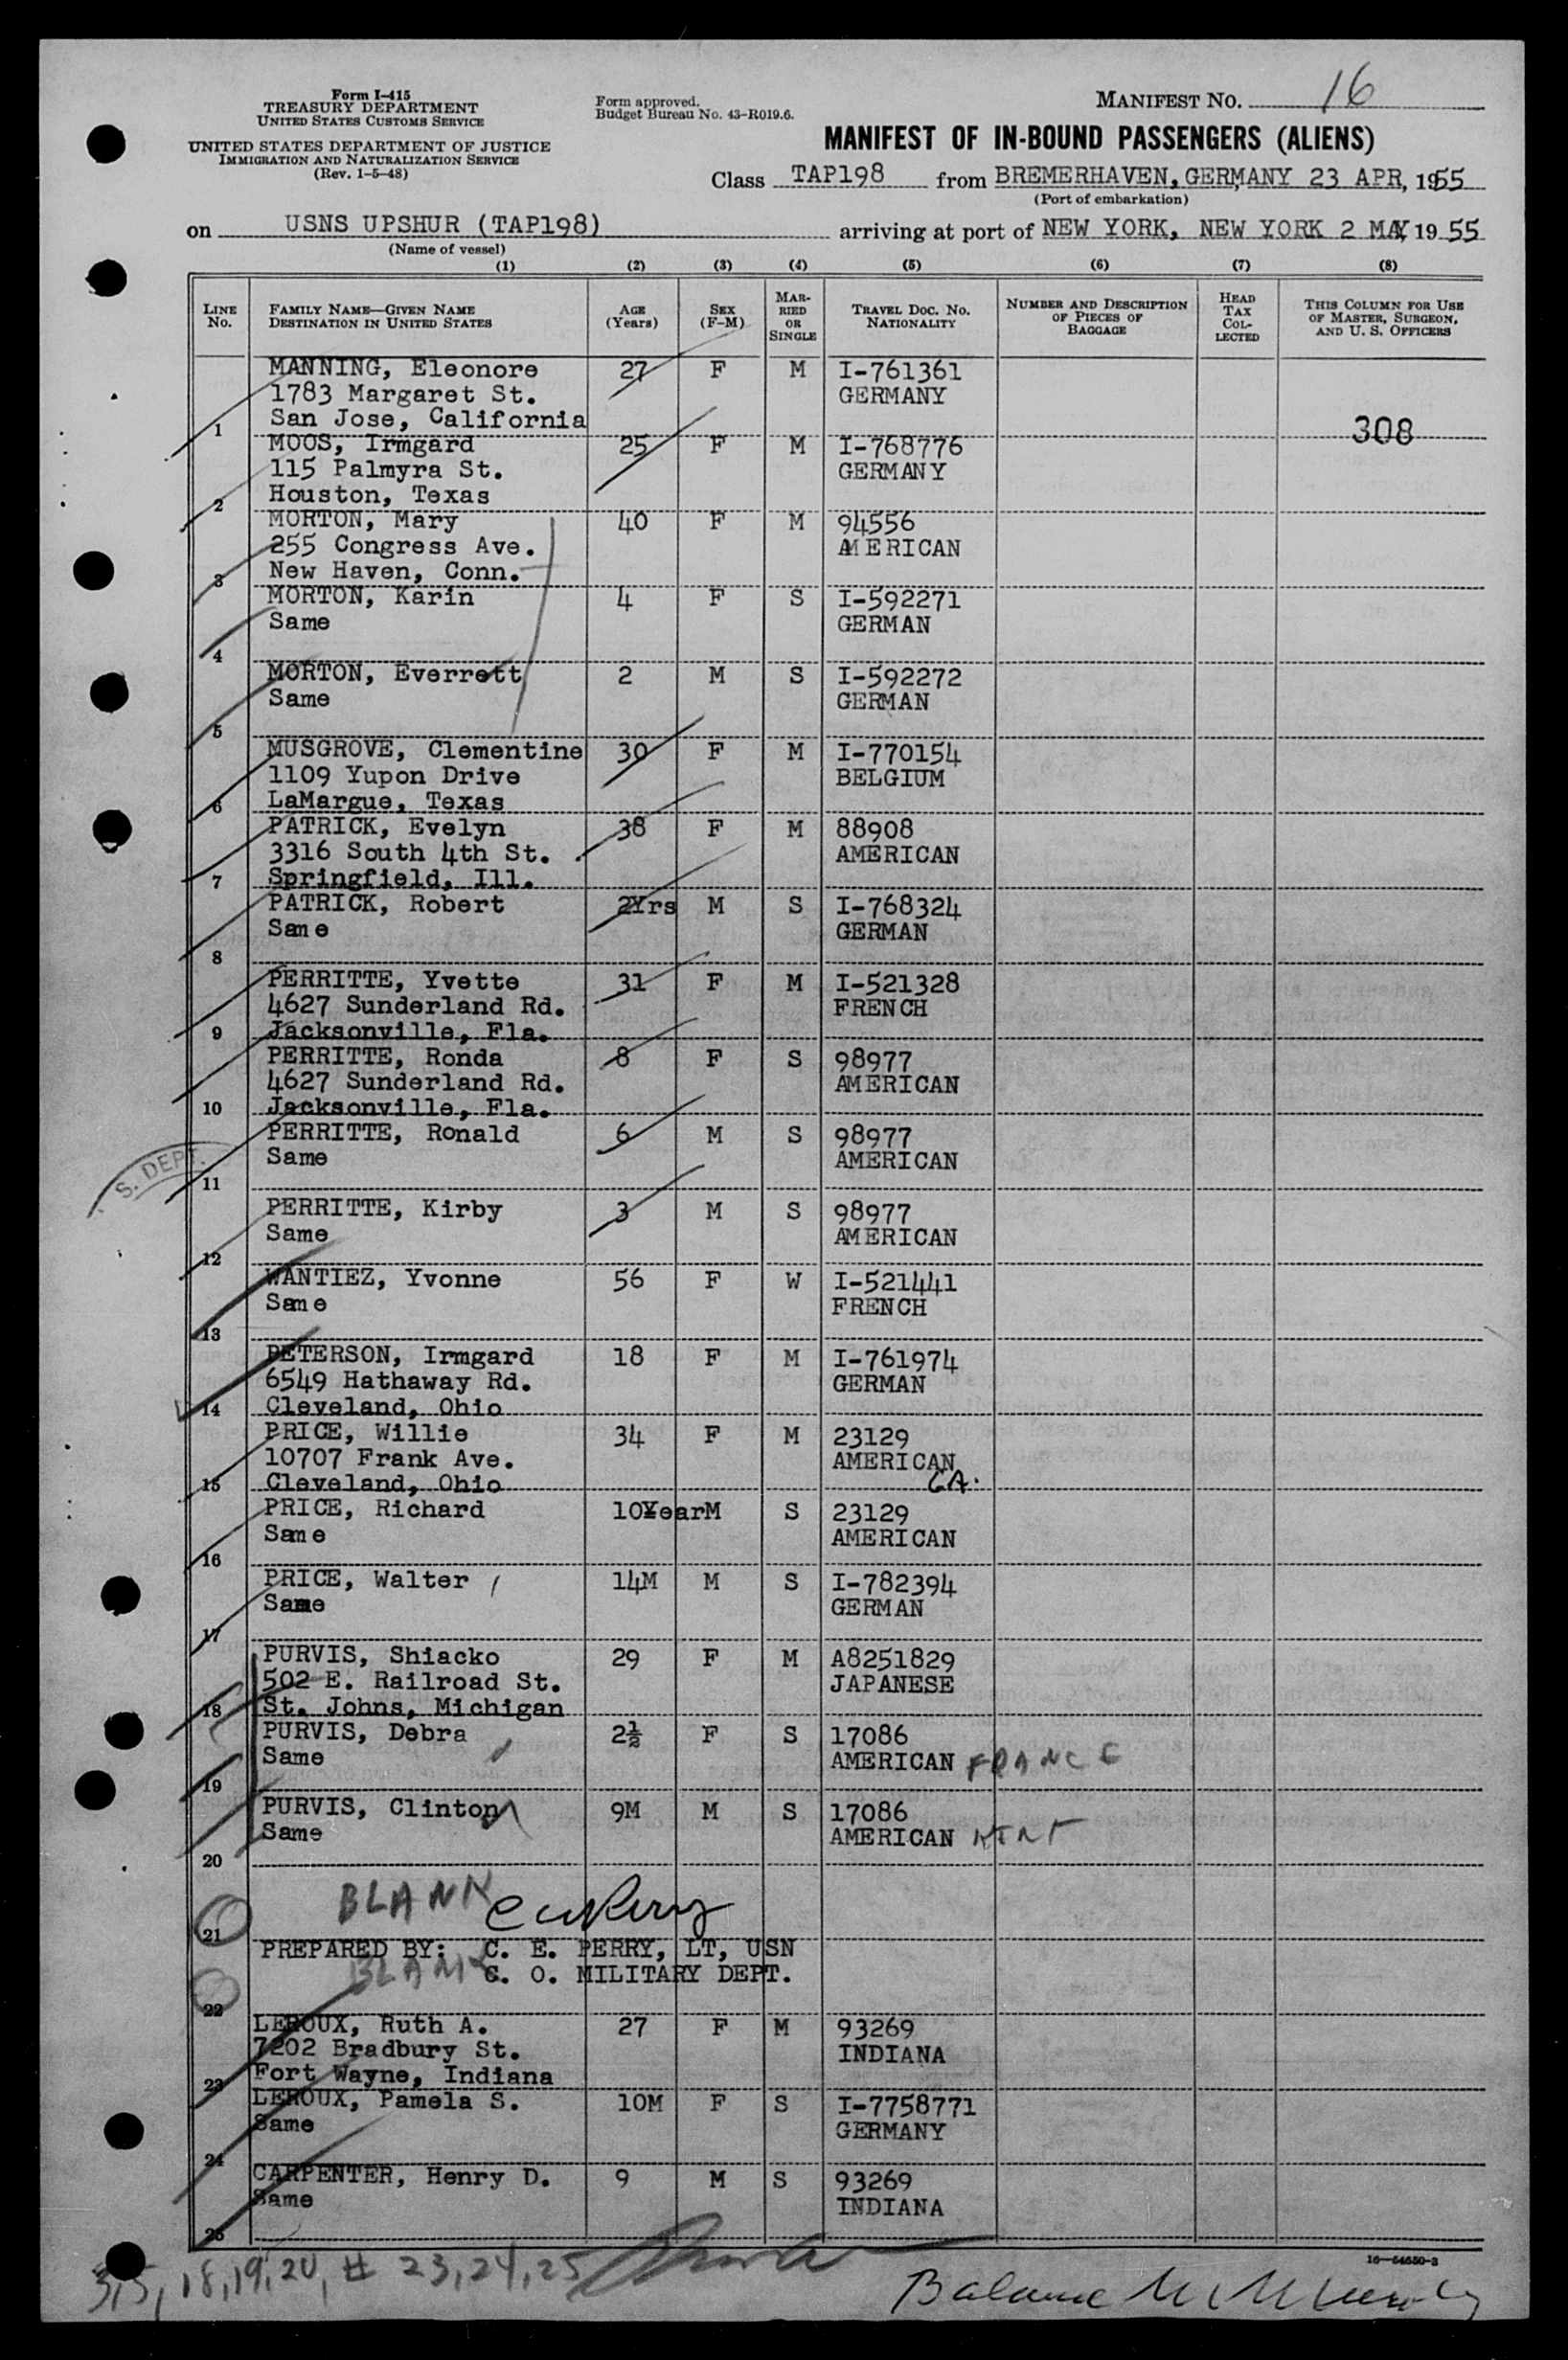 Form I-415
TREASURY DEPARTMENT
UNITED STATES CUSTOMS SERVICE
UNITED STATES DEPARTMENT OF JUSTICE
IMMIGRATION AND NATURALIZATION SERVICE
(Rev. 1-5-48)
Form approved.
Budget Bureau No. 43-R019.6.
MANIFEST NO. 16
MANIFEST OF IN-BOUND PASSENGERS (ALIENS)
Class TAP198 from BREMERHAVEN, GERMANY 23 APR, 1955
(Port of embarkation)
on USNS UPSHUR (TAP198) arriving at port of NEW YORK, NEW YORK 2 MAY, 1955
(Name of vessel)
(1) (2) (3) (4) (5) (6) (7) (8)
LINE No. FAMILY NAME—GIVEN NAME DESTINATION IN UNITED STATES AGE (Years) SEX (F-M) MARRIED OR SINGLE TRAVEL DOC. NO. NATIONALITY NUMBER AND DESCRIPTION OF PIECES OF BAGGAGE HEAD TAX COLLECTED THIS COLUMN FOR USE OF MASTER, SURGEON, AND U. S. OFFICERS
MANNING, Eleonore 27 F M I-761361
1783 Margaret St. GERMANY
1 San Jose, California 308
MOOS, Irmgard 25 F M I-768776
115 Palmyra St. GERMANY
2 Houston, Texas
MORTON, Mary 40 F M 94556
255 Congress Ave. AMERICAN
3 New Haven, Conn.
MORTON, Karin 4 F S I-592271
Same GERMAN
4
MORTON, Everrett 2 M S I-592272
Same GERMAN
5
MUSGROVE, Clementine 30 F M I-770154
1109 Yupon Drive BELGIUM
6 LaMargue, Texas
PATRICK, Evelyn 38 F M 88908
3316 South 4th St. AMERICAN
7 Springfield, Ill.
PATRICK, Robert 2Yrs M S I-768324
Same GERMAN
8
PERRITTE, Yvette 31 F M I-521328
4627 Sunderland Rd. FRENCH
9 Jacksonville, Fla.
PERRITTE, Ronda 8 F S 98977
4627 Sunderland Rd. AMERICAN
10 Jacksonville, Fla.
PERRITTE, Ronald 6 M S 98977
Same AMERICAN
S. DEPT.
11
PERRITTE, Kirby 3 M S 98977
Same AMERICAN
12
WANTIEZ, Yvonne 56 F W I-521441
Same FRENCH
13
PETERSON, Irmgard 18 F M I-761974
6549 Hathaway Rd. GERMAN
14 Cleveland, Ohio
PRICE, Willie 34 F M 23129
10707 Frank Ave. AMERICAN
15 Cleveland, Ohio
PRICE, Richard 10Year M S 23129
Same AMERICAN
16
PRICE, Walter 14M M S I-782394
Same GERMAN
17
PURVIS, Shiacko 29 F M A8251829
502 E. Railroad St. JAPANESE
18 St. Johns, Michigan
PURVIS, Debra 2½ F S 17086
Same AMERICAN FRANCE
19
PURVIS, Clinton 9M M S 17086
Same AMERICAN
20
BLANK
21
PREPARED BY: C. E. PERRY, LT, USN
BLANK C. O. MILITARY DEPT.
22
LEROUX, Ruth A. 27 F M 93269
7202 Bradbury St. INDIANA
23 Fort Wayne, Indiana
LEROUX, Pamela S. 10M F S I-7758771
Same GERMANY
24
CARPENTER, Henry D. 9 M S 93269
Same INDIANA
25
16—54650-3
3,5, 18,19,20, # 23,24,25
Balance